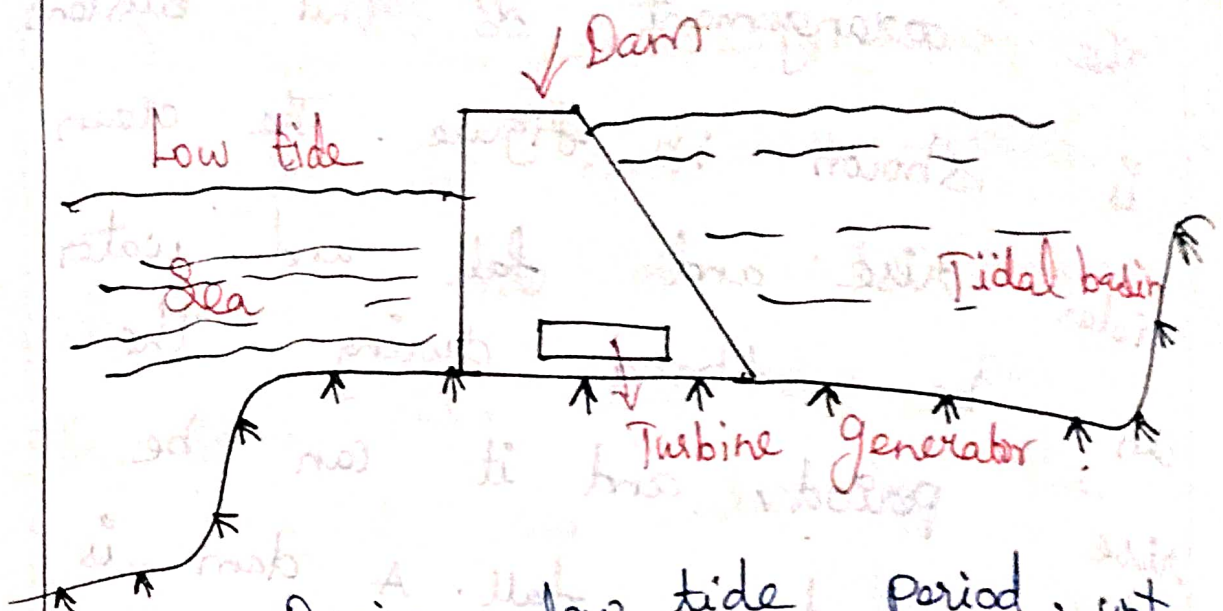 Dam
Low tide
Sea
Tidal basin
Turbine generator
low tide period